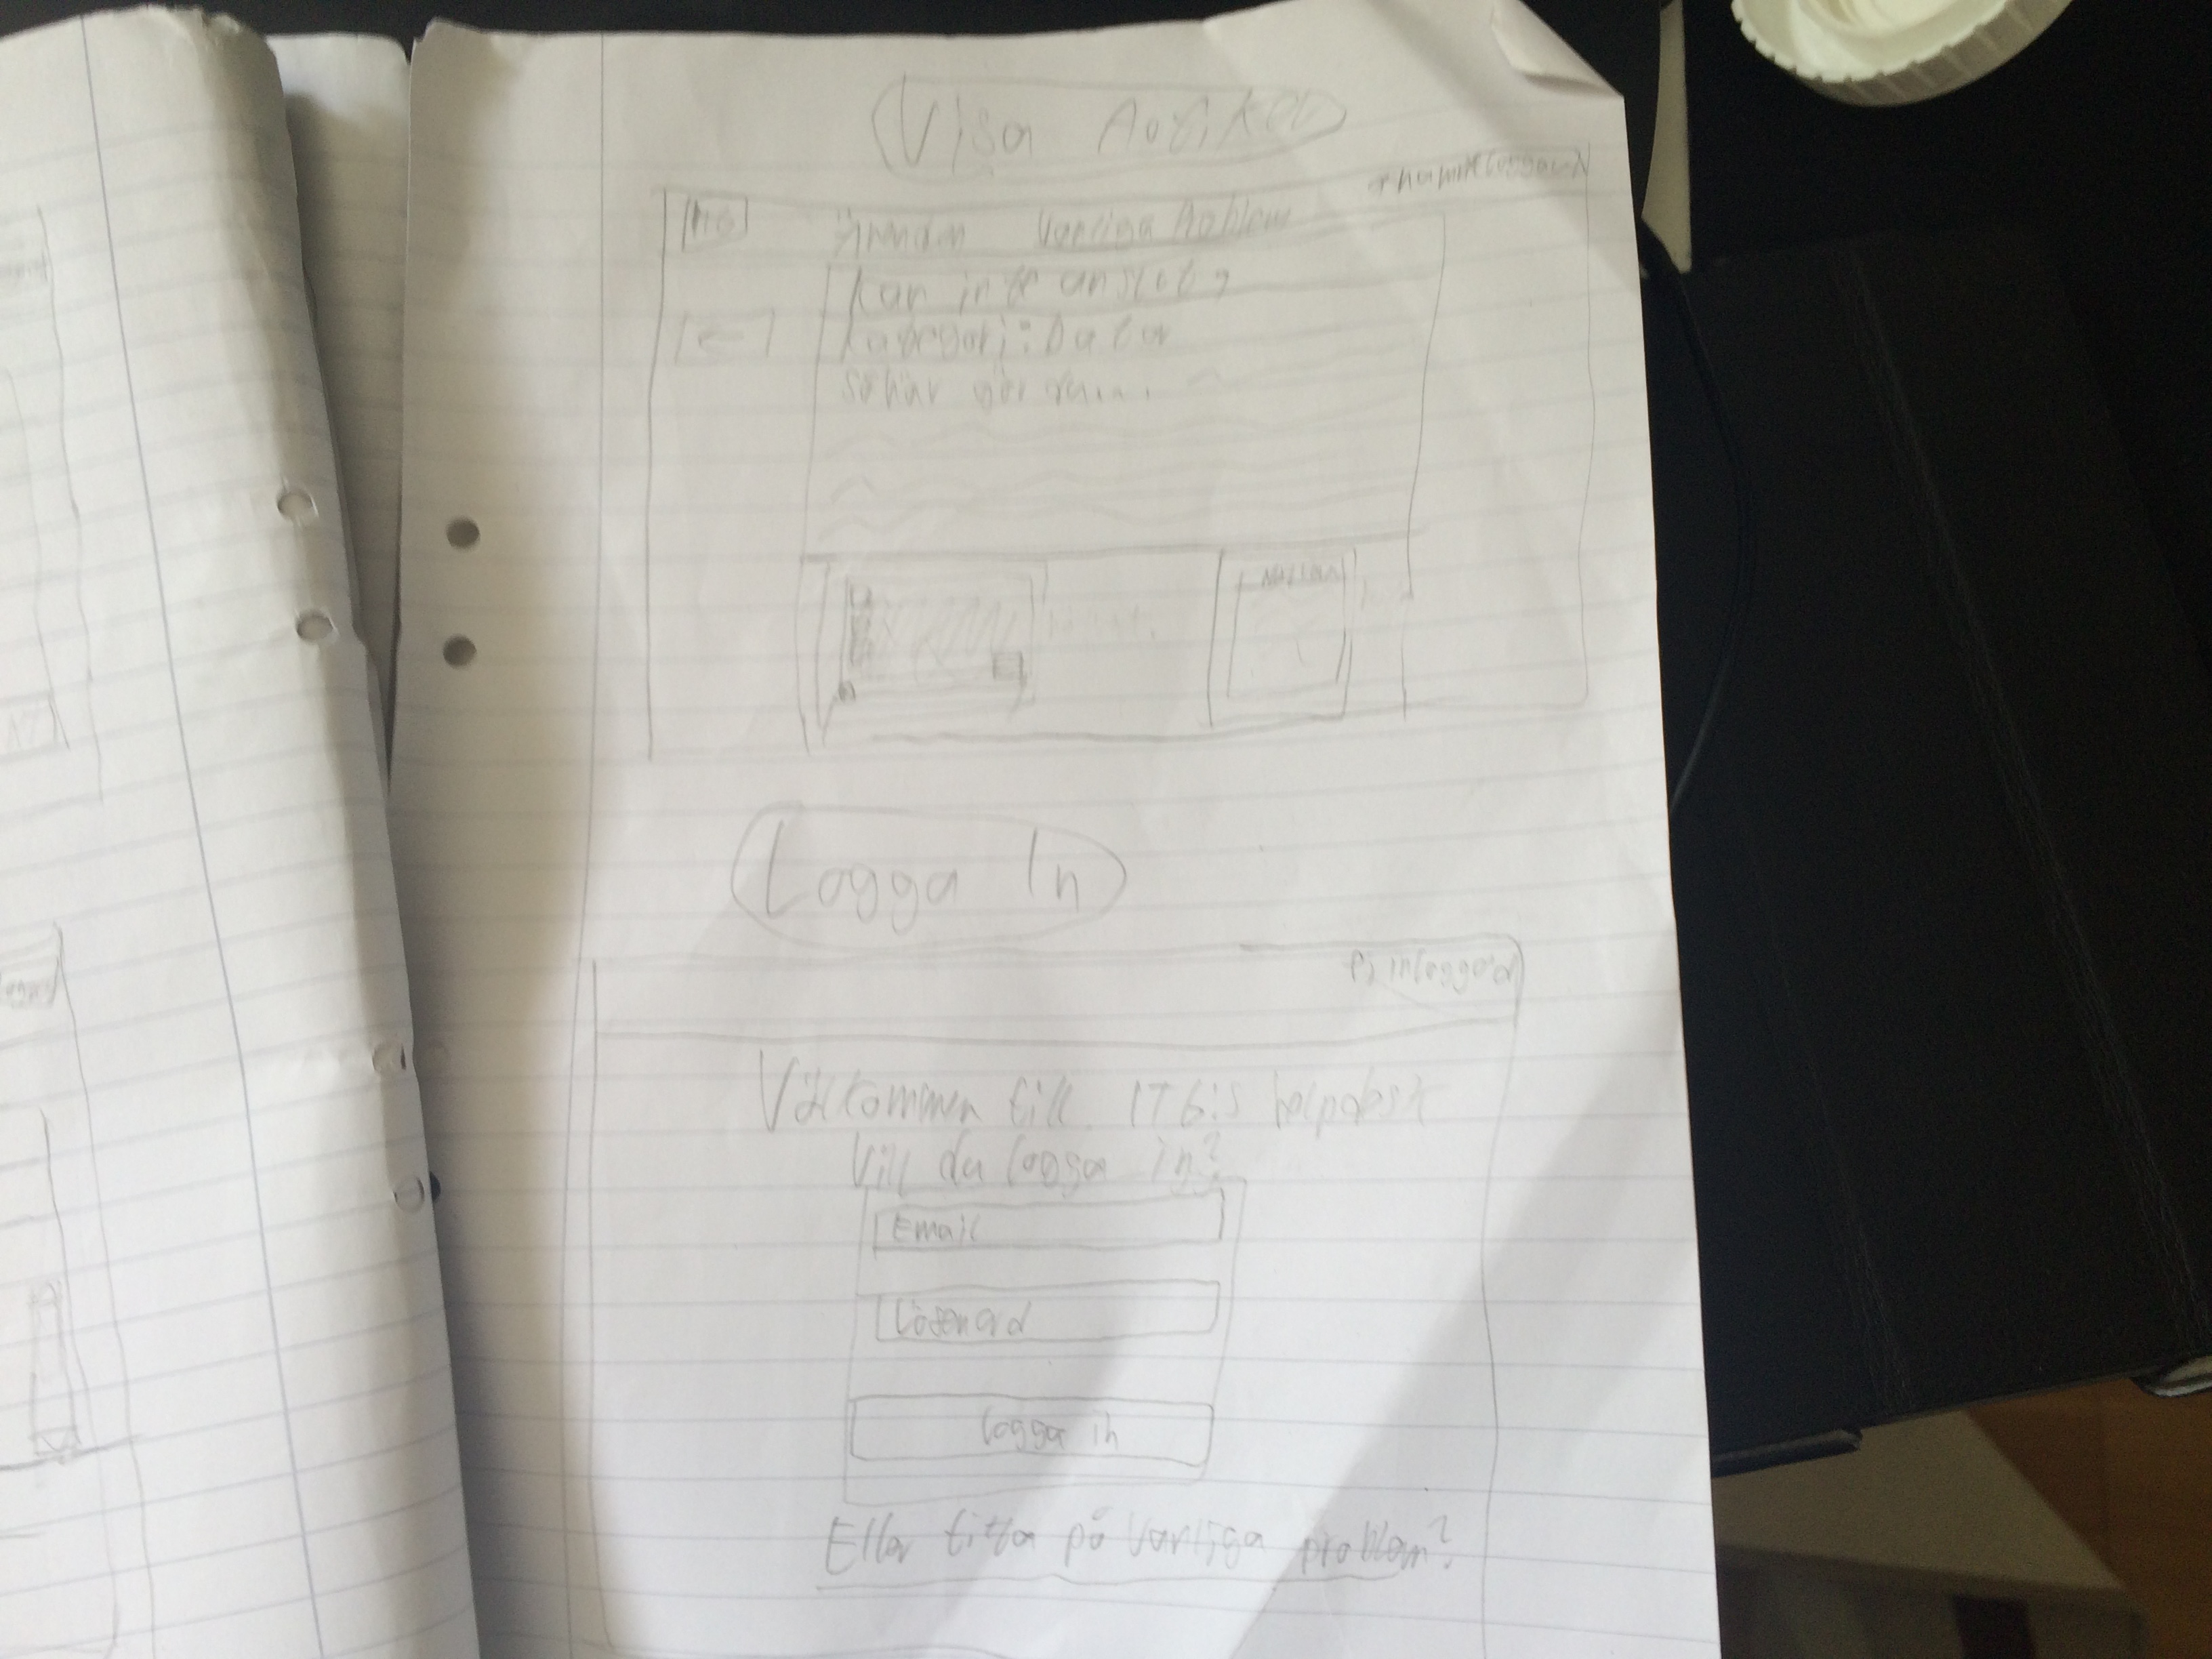 Visa Artikel
Ärenden Vanliga Problem
Kan inte ansluta
Kategori: Dator
såhär gör du...
Logga In
Ej inloggad
Välkommen till helpdesk
Vill du logga in?
Email
Lösenord
logga in
Eller titta på vanliga problem?